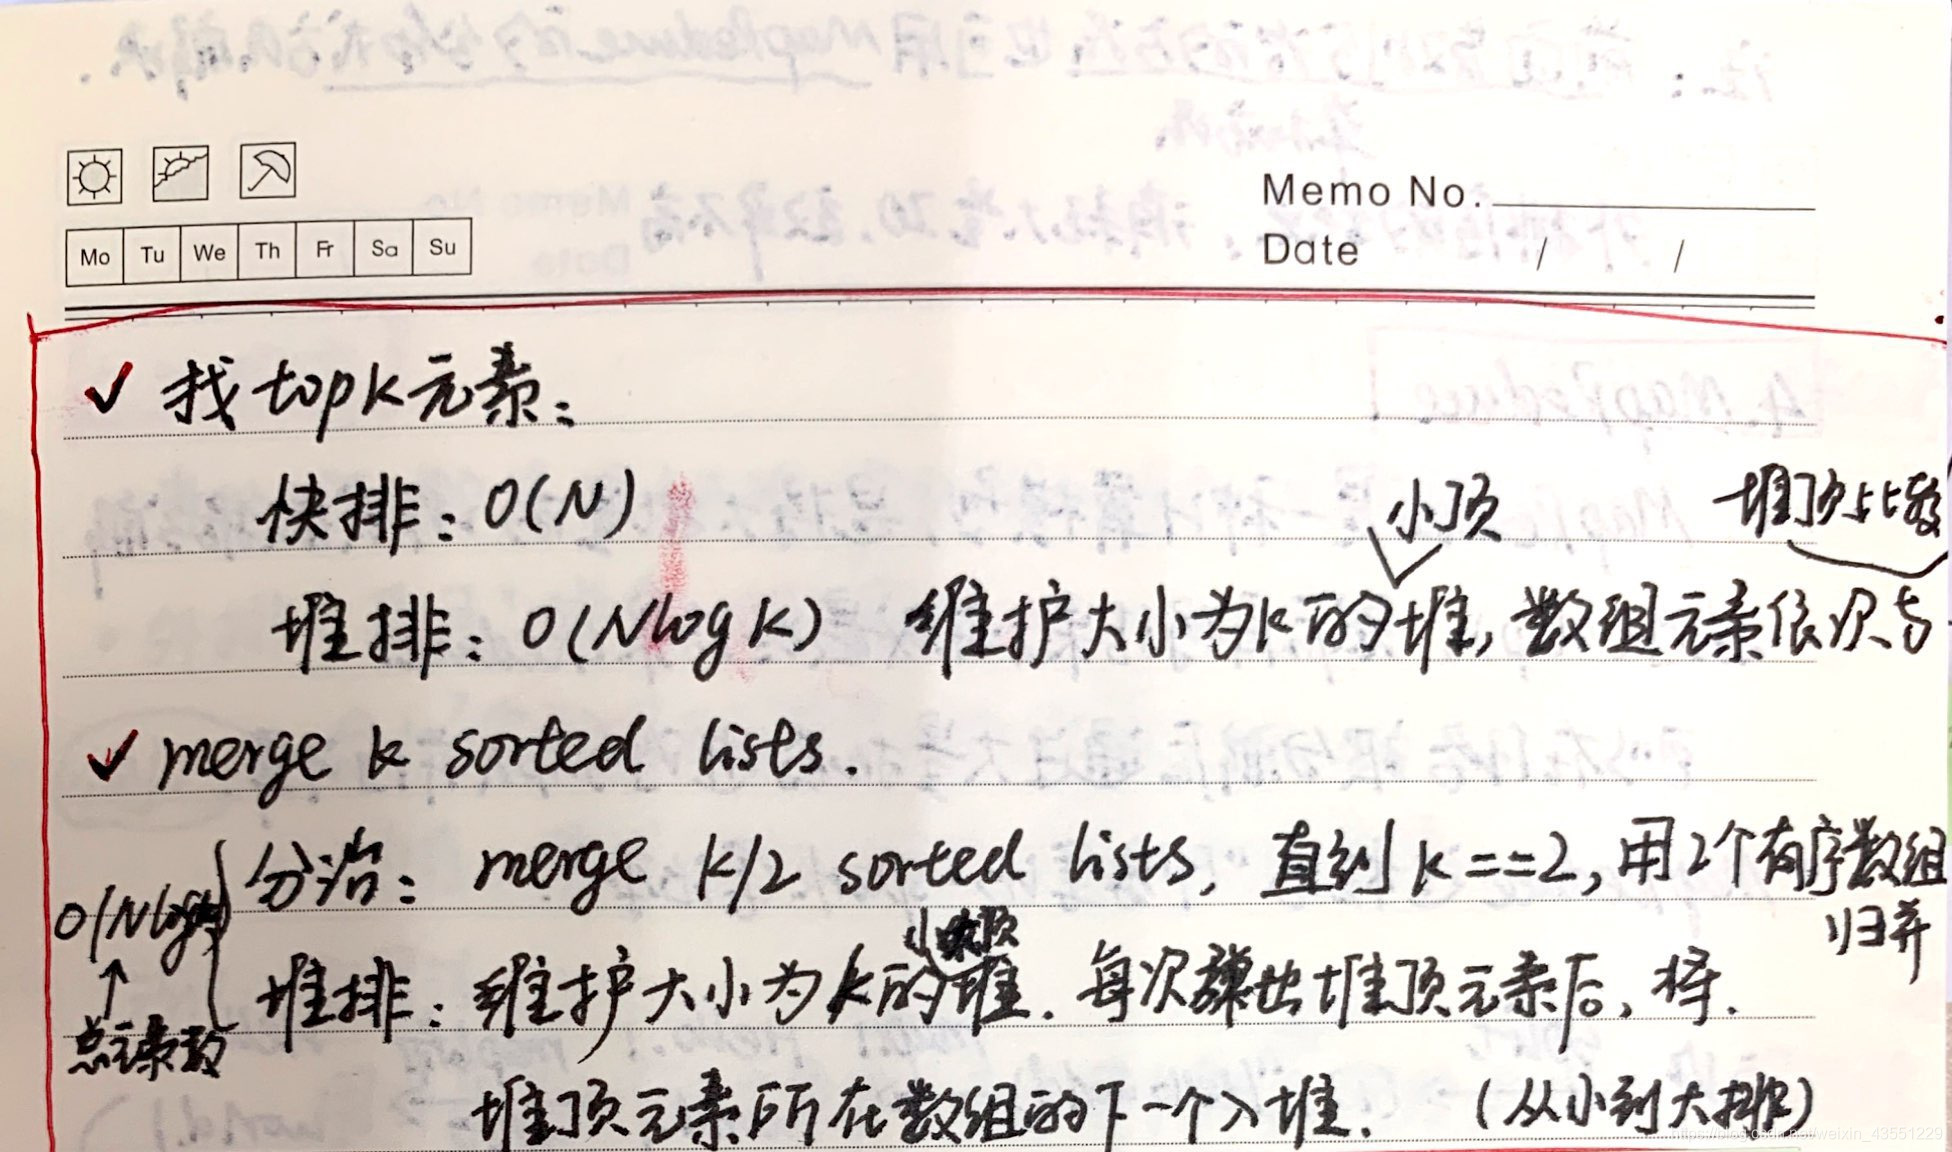 Memo No.
Mo Tu We Th Fr Sa Su
Date / /
✓ 找topk元素:
快排: O(N)
小顶
堆顶比较
堆排: O(Nlogk) 维护大小为k的堆, 数组元素依次与
✓ merge k sorted lists.
分治: merge k/2 sorted lists, 直到k==2, 用2个有序数组
归并
O(Nlogk)
↑
总元素数
小顶
堆排: 维护大小为k的堆. 每次弹出堆顶元素后, 将.
堆顶元素所在数组的下一个入堆. (从小到大排)
https://blog.csdn.net/weixin_43551229